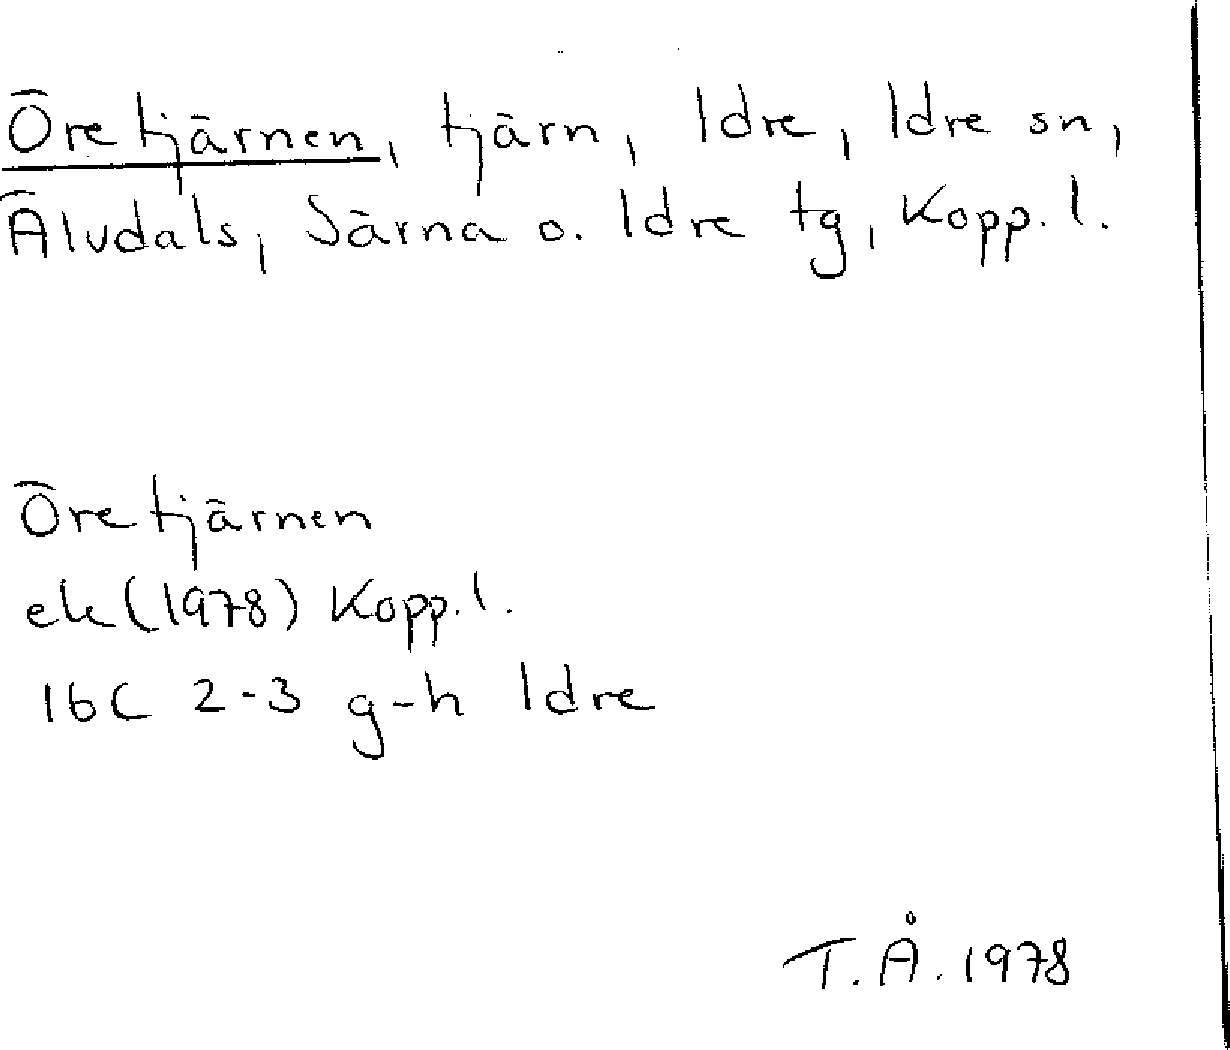 Öretjärnen, tjärn, Idre, Idre sn,
Älvdals, Särna o. Idre tg, Kopp. l.
Öretjärnen
ek (1978) Kopp. l.
16C 2-3 g-h Idre
T. Å. 1978